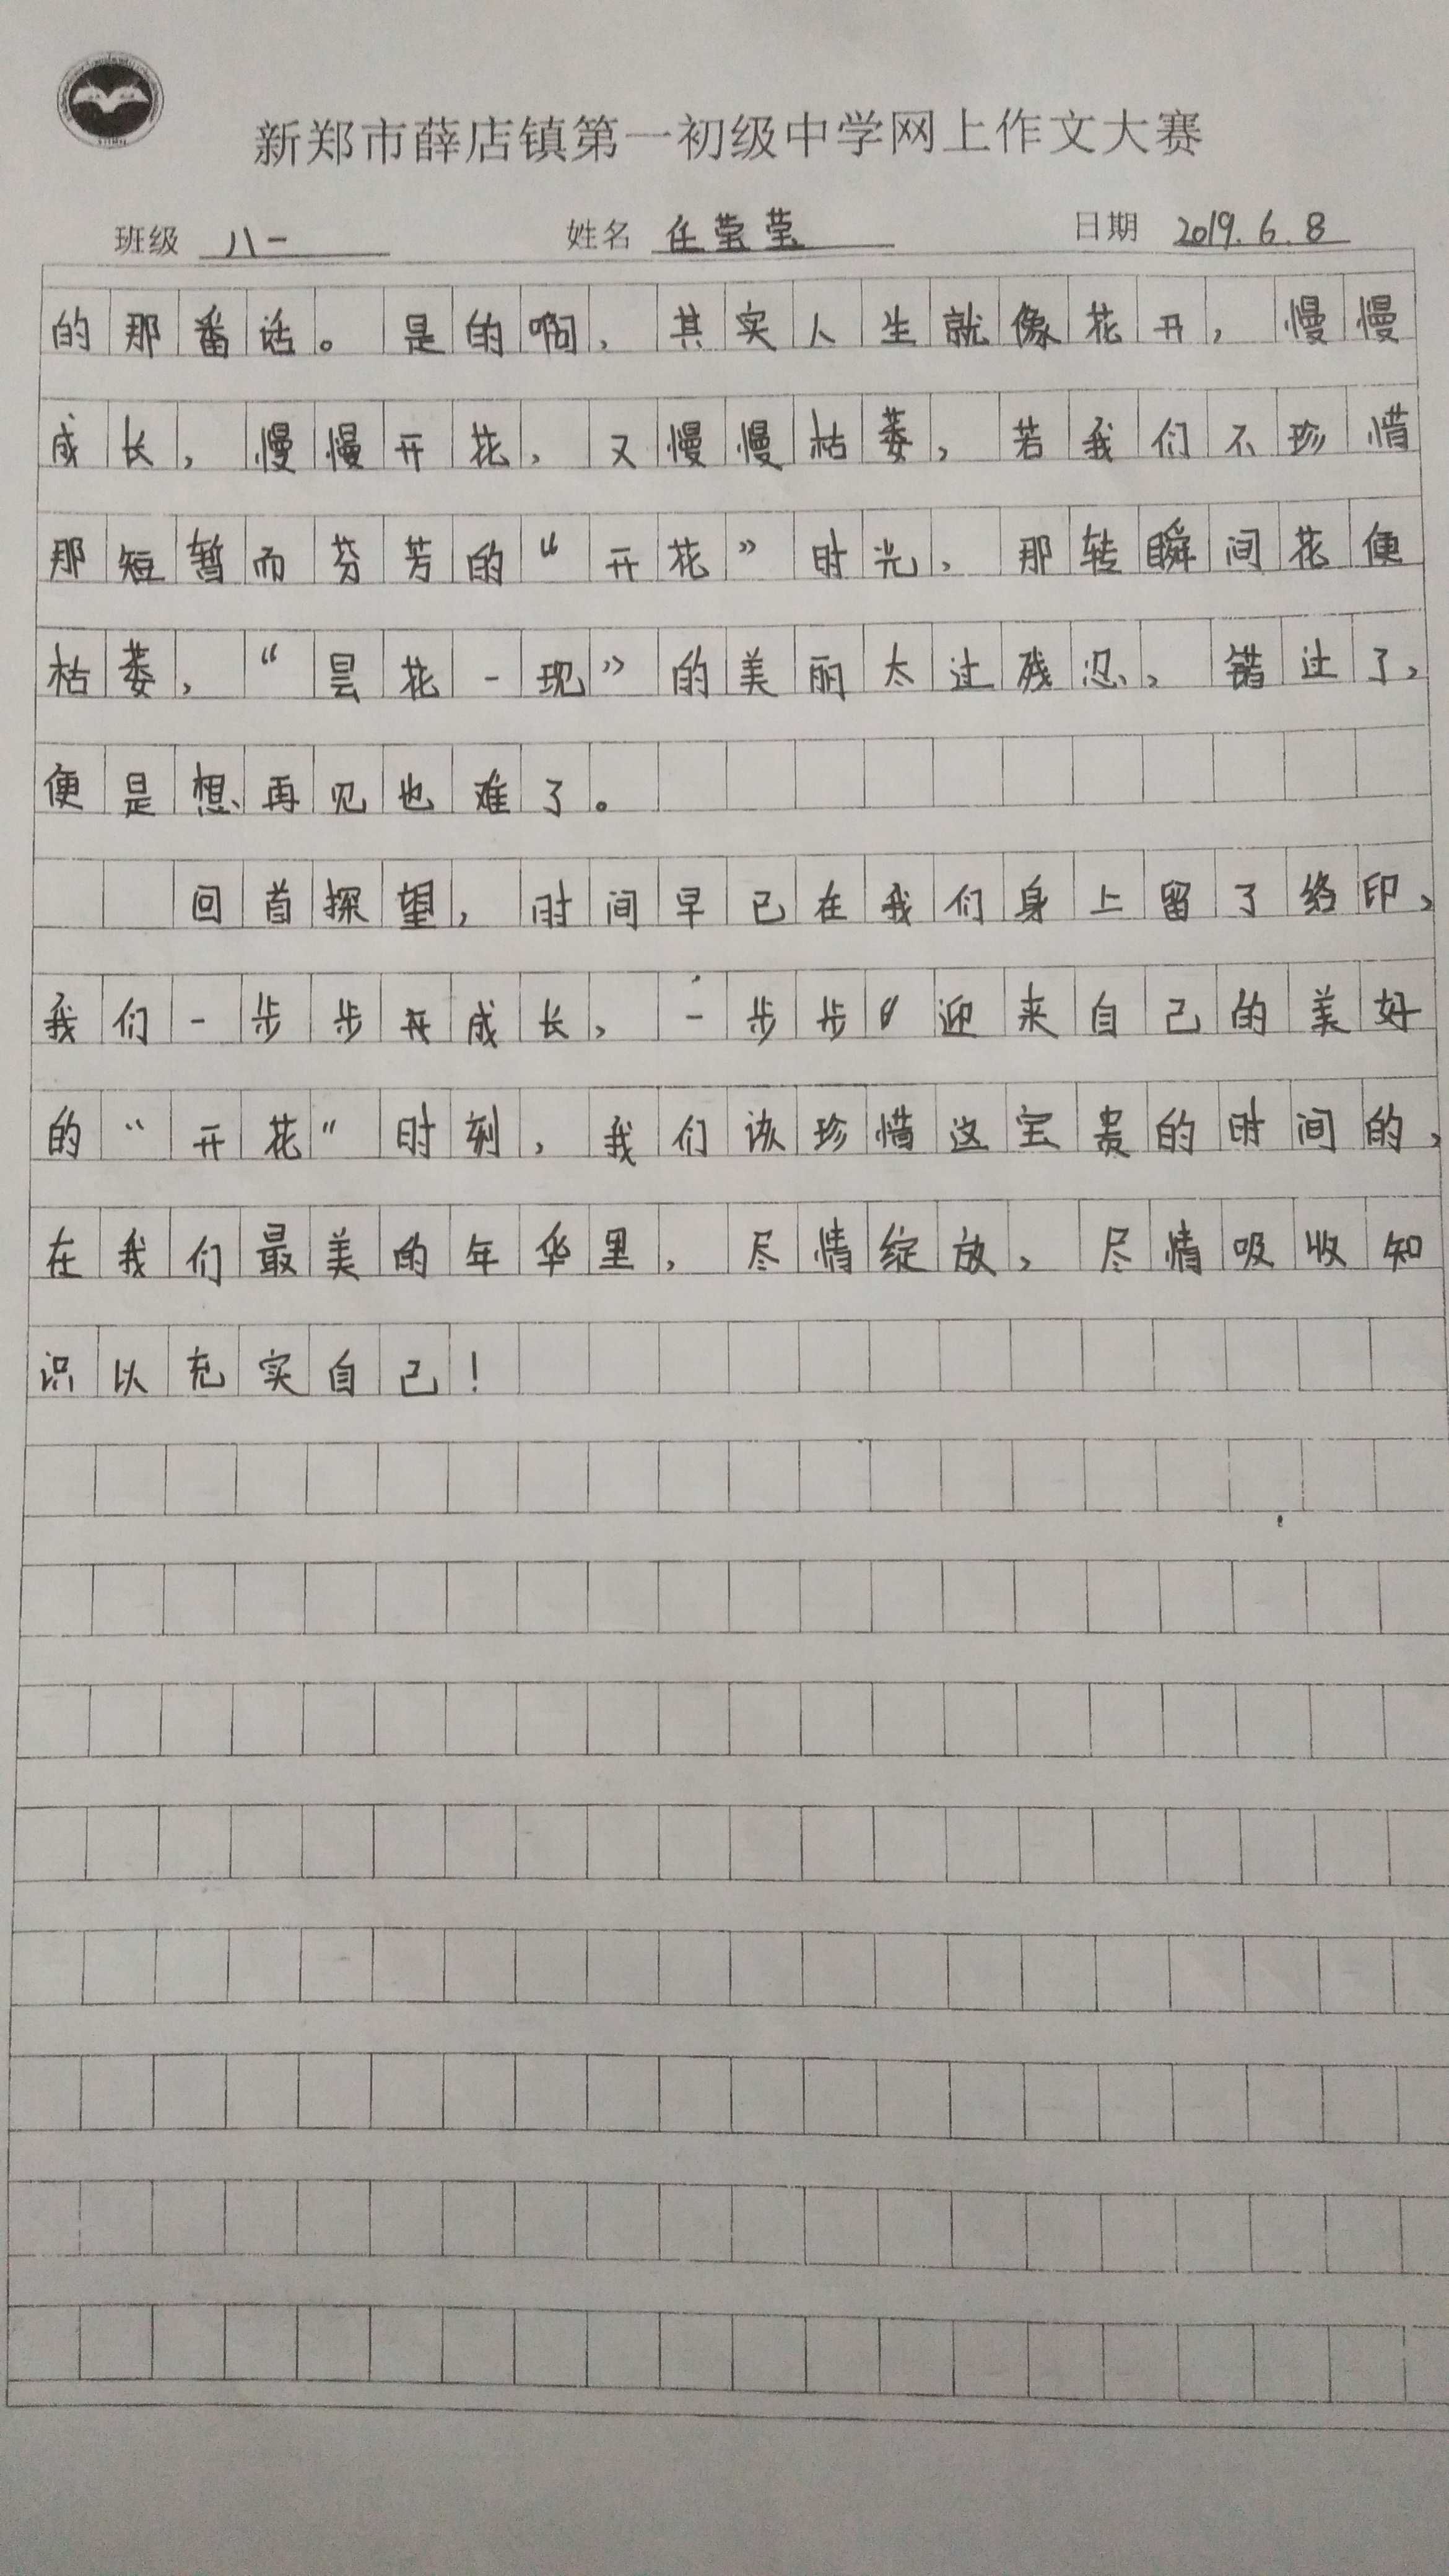 新郑市薛店镇第一初级中学网上作文大赛
班级 八一 姓名 任莹莹 日期 2019.6.8
的那番话。是的啊,其实人生就像花开,慢慢
成长,慢慢开花,又慢慢枯萎,若我们不珍惜
那短暂而芬芳的“开花”时光,那转瞬间花便
枯萎,“昙花一现”的美丽太过残忍,错过了,
便是想再见也难了。
回首探望,时间早已在我们身上留了络印,
我们一步步在成长,一步步迎来自己的美好
的“开花”时刻,我们该珍惜这宝贵的时间的,
在我们最美的年华里,尽情绽放,尽情吸收知
识以充实自己!